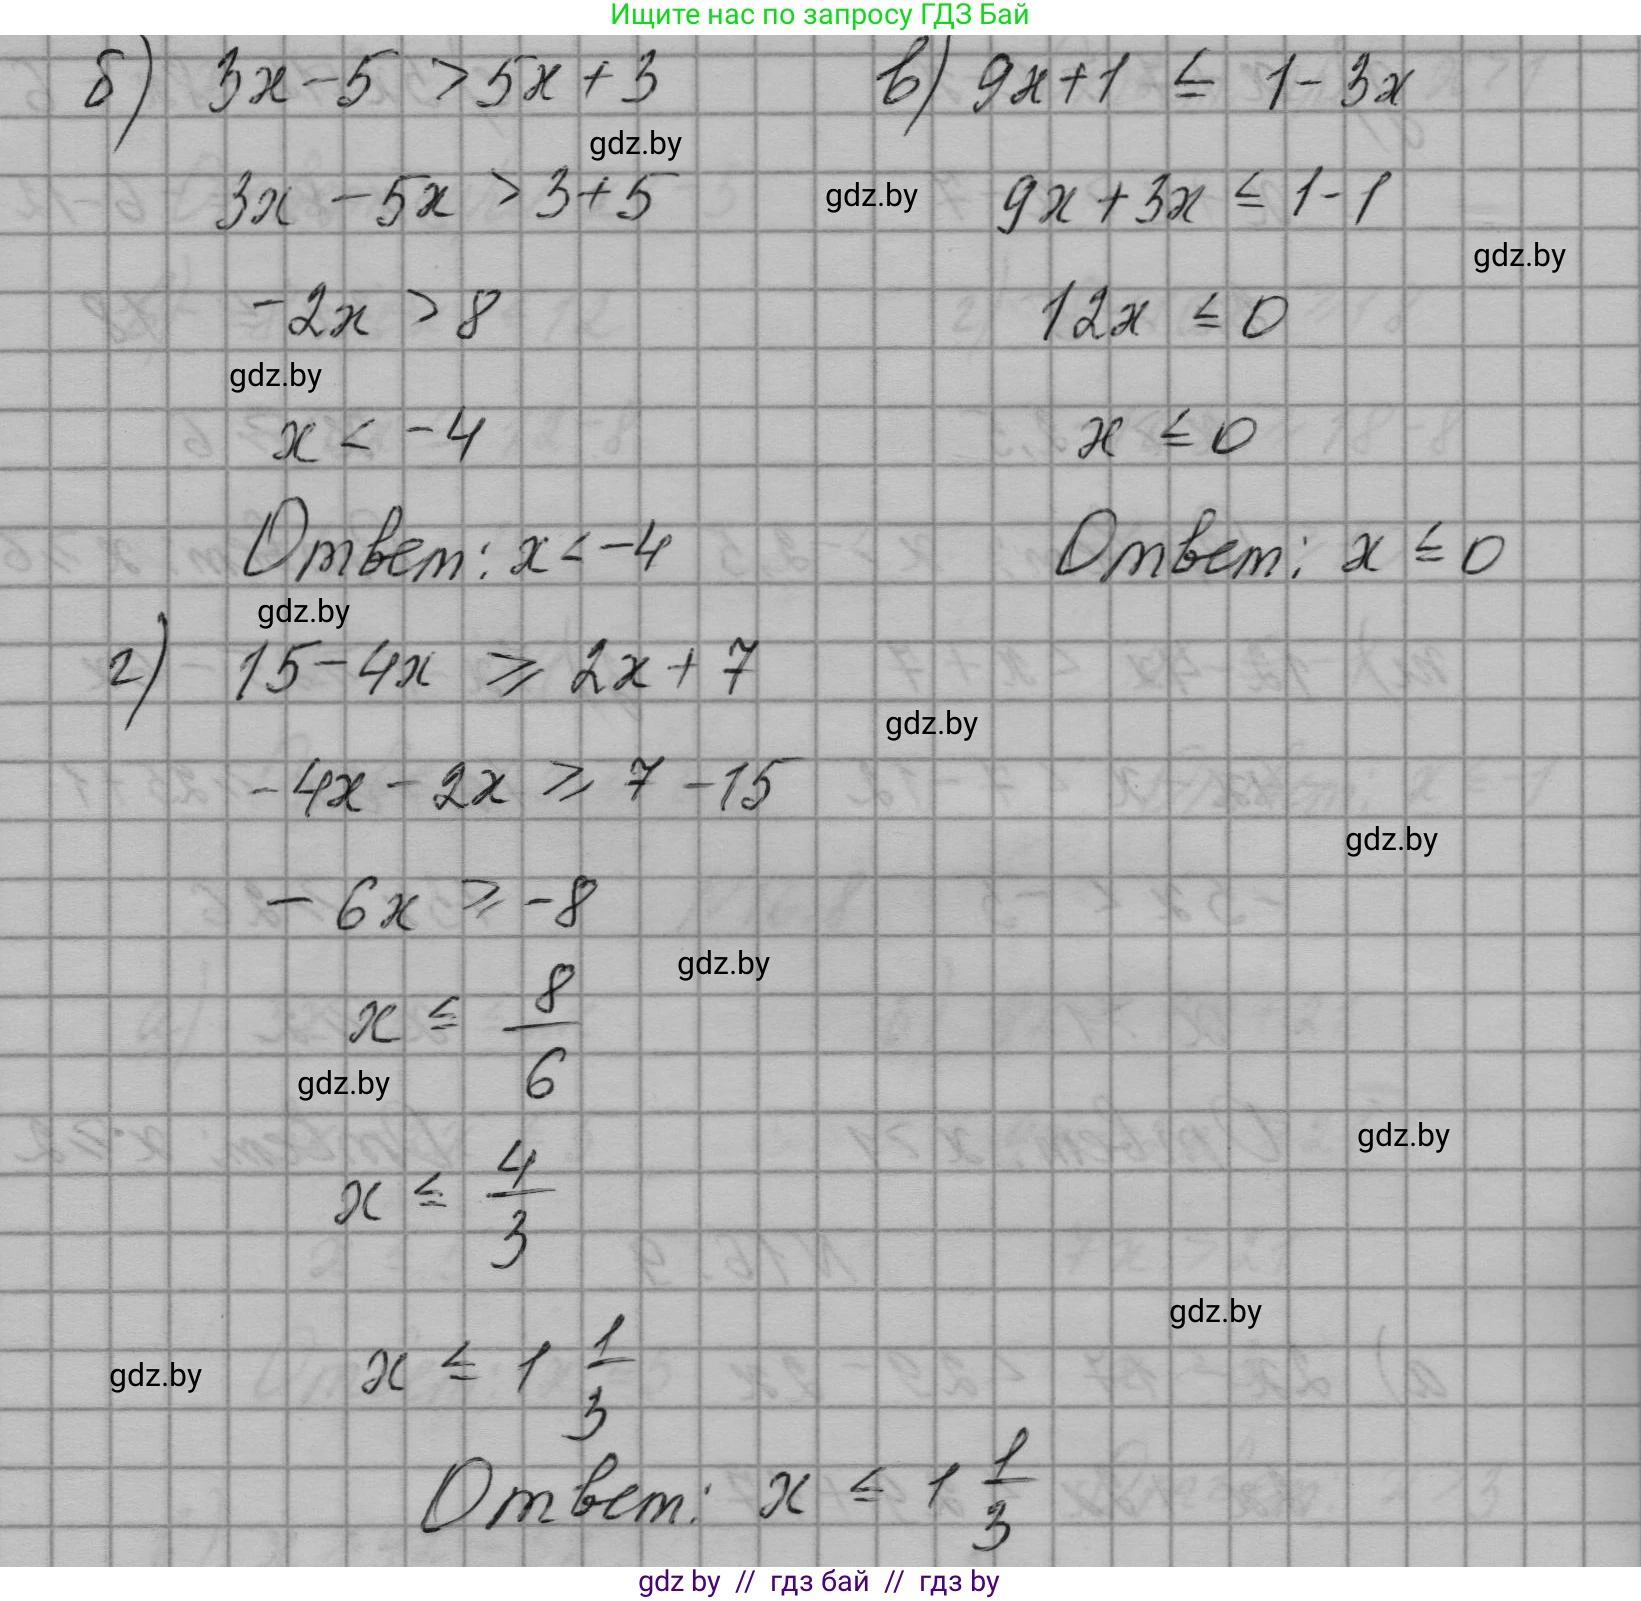 Ищите нас по запросу ГДЗ Бай
б) 3x - 5 > 5x + 3
gdz.by
3x - 5x > 3 + 5
-2x > 8
gdz.by
x < -4
Ответ: x < -4
gdz.by
в) 9x + 1 ≤ 1 - 3x
gdz.by
9x + 3x ≤ 1 - 1
gdz.by
12x ≤ 0
x ≤ 0
Ответ: x ≤ 0
г) 15 - 4x ⩾ 2x + 7
gdz.by
-4x - 2x ⩾ 7 - 15
gdz.by
-6x ⩾ -8
gdz.by
x ≤ 8/6
gdz.by
gdz.by
x ≤ 4/3
gdz.by
x ≤ 1 1/3
gdz.by
Ответ: x ≤ 1 1/3
gdz by // гдз бай // гдз by